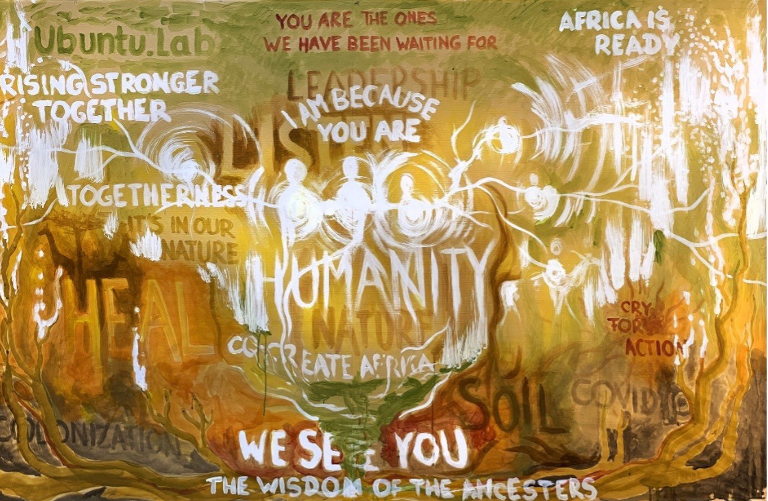 Ubuntu.Lab
YOU ARE THE ONES
WE HAVE BEEN WAITING FOR
AFRICA IS
READY
RISING STRONGER
TOGETHER
LEADERSHIP
I AM BECAUSE
YOU ARE
LISTEN
TOGETHERNESS
IT'S IN OUR
NATURE
HUMANITY
HEAL
NATURE
CO-CREATE AFRICA
CRY
FOR
ACTION
SOIL
COVID
COLONIZATION
WE SEE YOU
THE WISDOM OF THE ANCESTERS